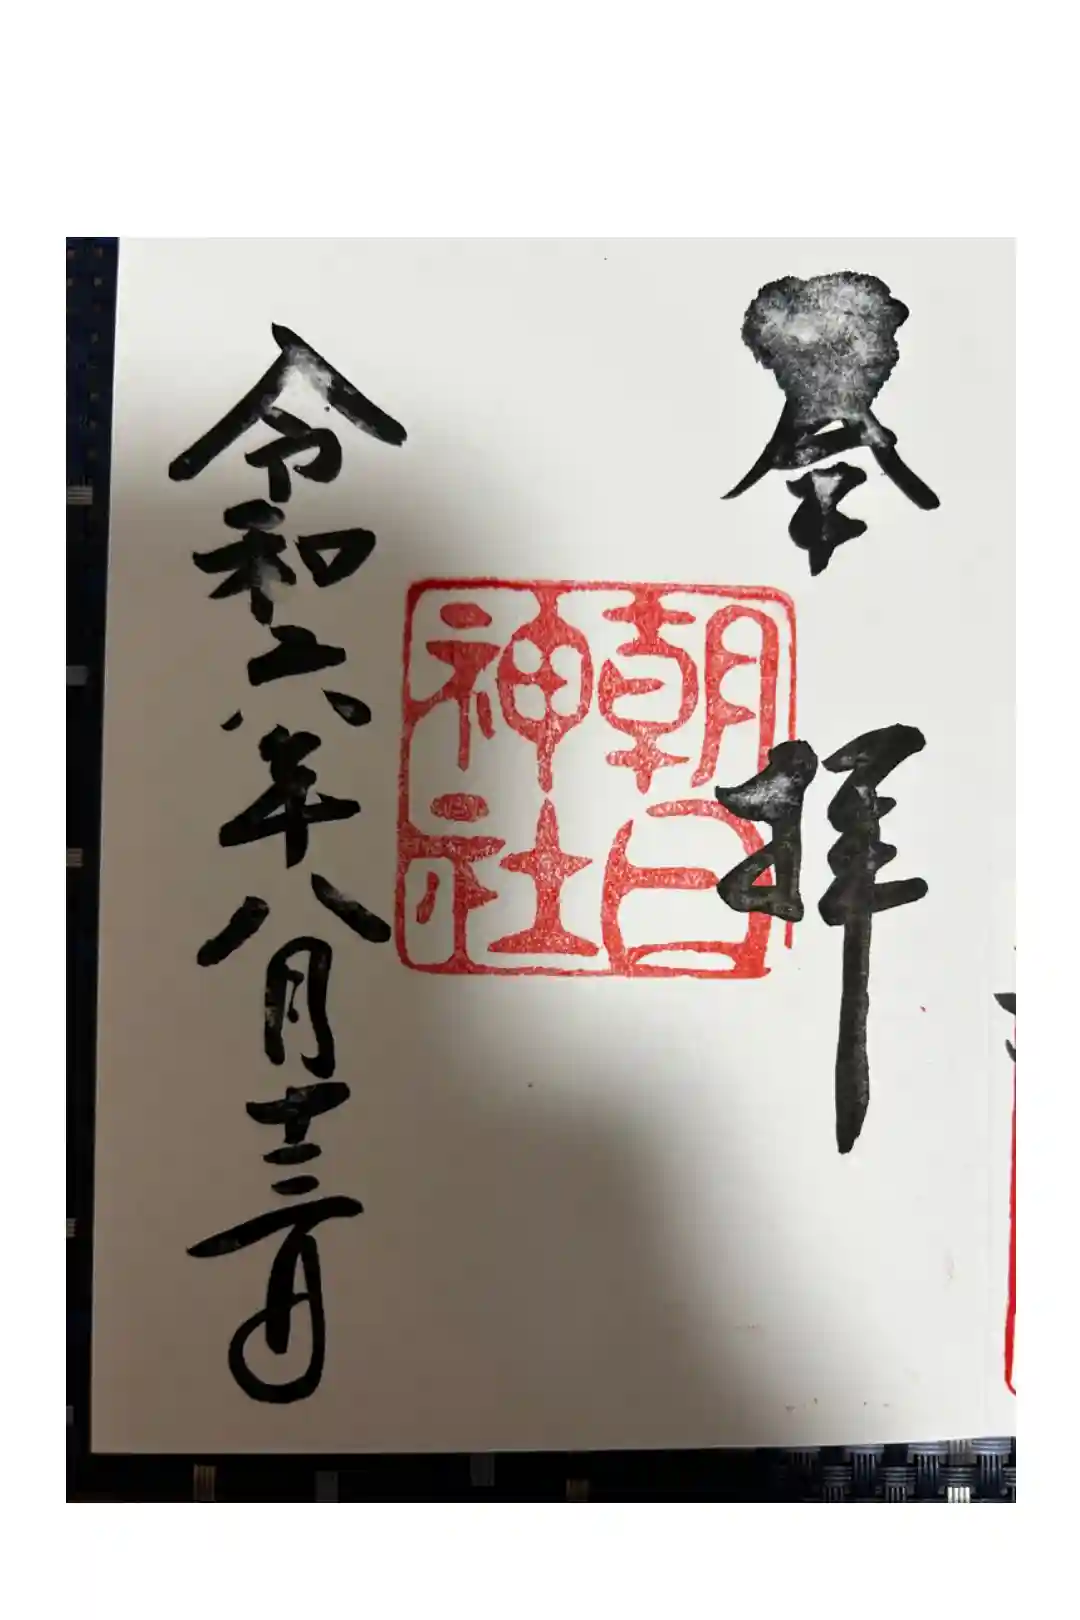 奉拝
朝日
神社
令和六年八月十三日